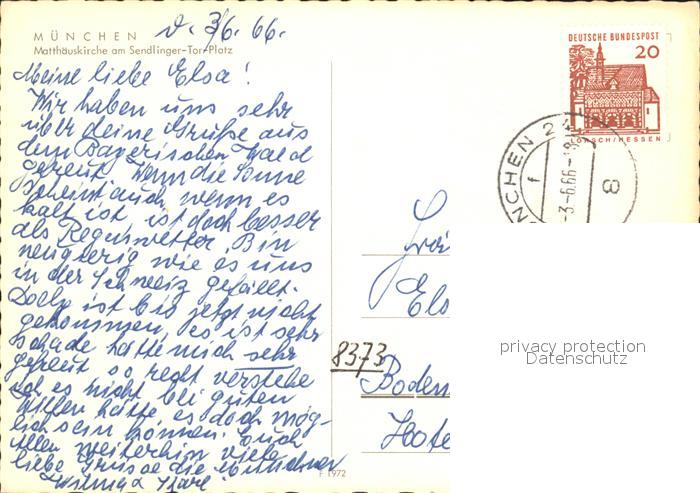 d. 3/6. 66.
MÜNCHEN
Matthäuskirche am Sendlinger-Tor-Platz
Meine liebe Elsa!
Wir haben uns sehr
über deine Grüße aus
dem Bayerischen Wald
gefreut. Wenn die Sonne
scheint auch, wenn es
kalt ist ist doch besser
als Regenwetter. Bin
neugierig wie es uns
in der Schweiz gefällt.
ist bis jetzt nicht
gekommen, es ist sehr
schade hätte mich sehr
gefreut so recht verstehe
ich es nicht bei guten
Willen hätte es doch mög-
lich sein können. Euch
allen weiterhin viele
liebe Grüsse die Münchner
DEUTSCHE BUNDESPOST
20
LORSCH/HESSEN
MÜNCHEN 2
f
-3.-6.66-18
8
Els
8373
Boden
Hote
F 1972
privacy protection
Datenschutz